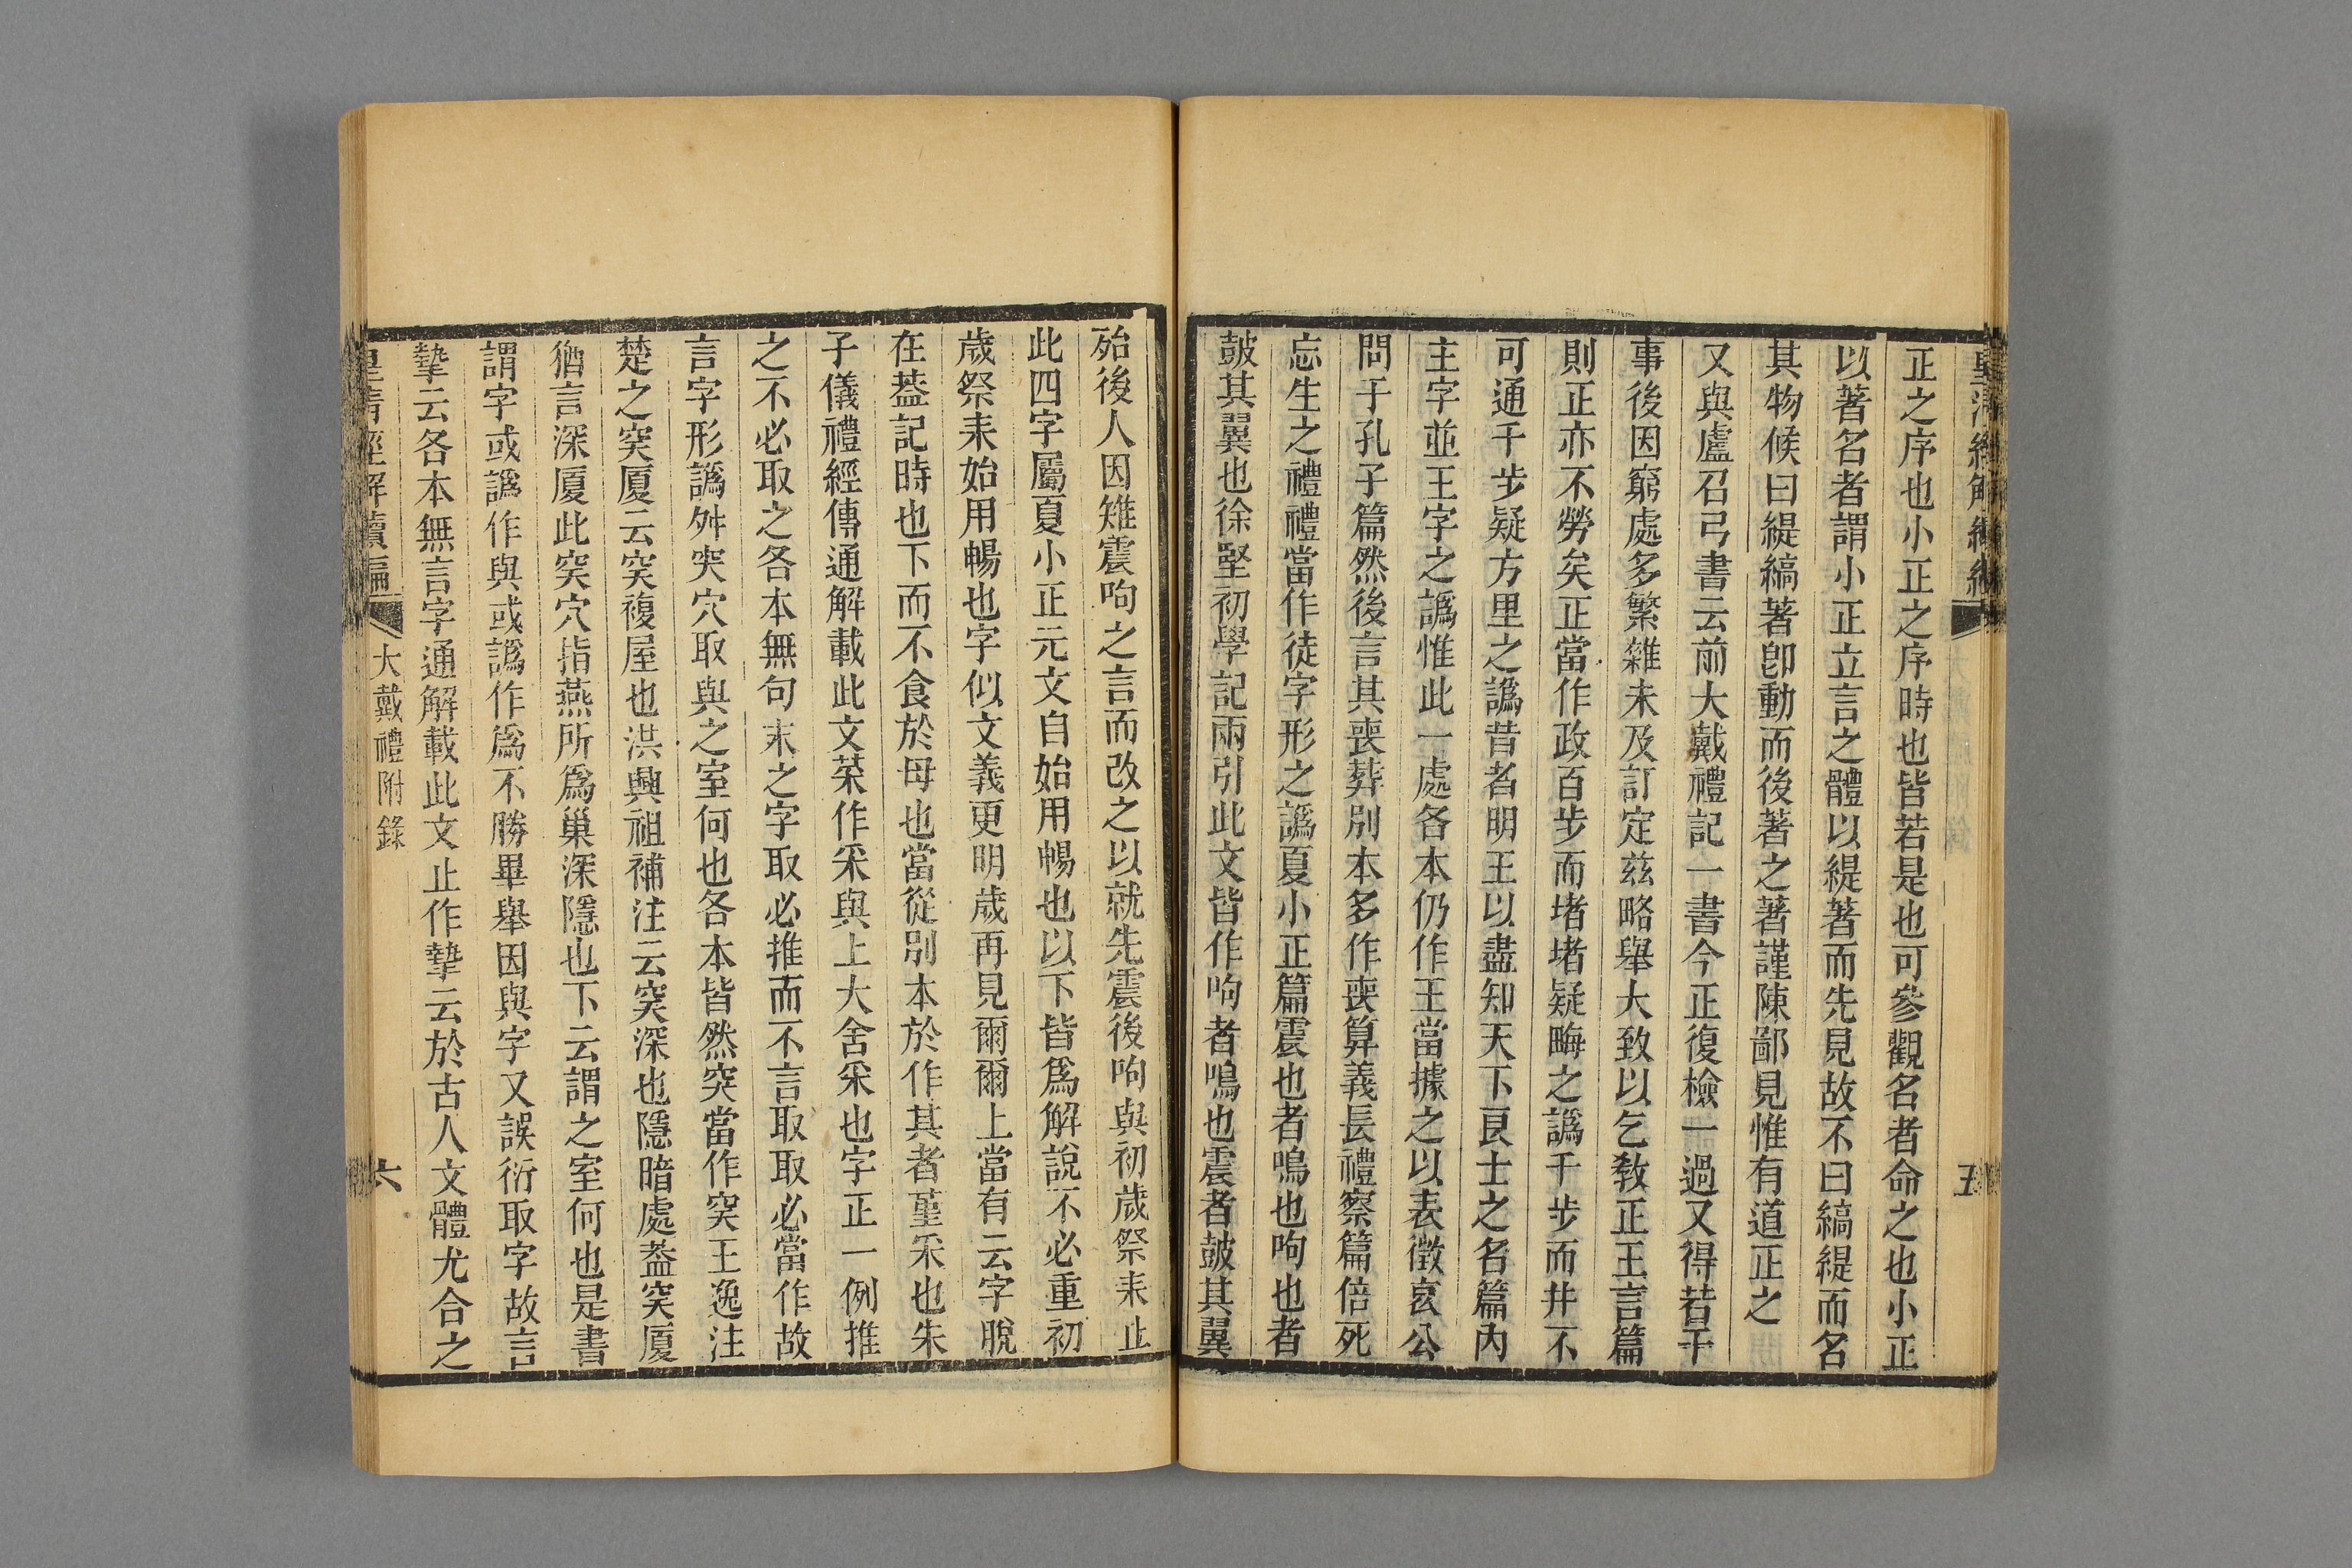 皇清經解續編
五
正之序也小正之序時也皆若是也可參觀名者命之也小正
以著名者謂小正立言之體以緹著而先見故不曰縞緹而名
其物候曰緹縞著卽動而後著之著謹陳鄙見惟有道正之
又與盧召弓書云前大戴禮記一書今正復檢一過又得若干
事後因窮處多繁雜未及訂定兹略舉大致以乞教正王言篇
則正亦不勞矣正當作政百步而堵堵疑畮之譌千步而井不
可通千步疑方里之譌昔者明王以盡知天下良士之名篇內
主字並王字之譌惟此一處各本仍作王當據之以表徵哀公
問于孔子篇然後言其喪葬別本多作喪算義長禮察篇倍死
忘生之禮禮當作徒字形之譌夏小正篇震也者鳴也呴也者
鼓其翼也徐堅初學記兩引此文皆作呴者鳴也震者鼓其翼
殆後人因雉震呴之言而改之以就先震後呴與初歲祭耒止
此四字屬夏小正元文自始用暢也以下皆爲解說不必重初
歲祭耒始用暢也字似文義更明歲再見爾爾上當有云字脫
在葢記時也下而不食於母也當從別本於作其者堇采也朱
子儀禮經傳通解載此文菜作采與上大舍采也字正一例推
之不必取之各本無句末之字取必推而不言取取必當作故
言字形譌舛突穴取與之室何也各本皆然突當作穾王逸注
楚之突厦云穾複屋也洪興祖補注云穾深也隱暗處葢穾厦
猶言深厦此穾穴指燕所爲巢深隱也下云謂之室何也是書
謂字或譌作與或譌作爲不勝畢舉因與字又誤衍取字故言
摯云各本無言字通解載此文止作摯云於古人文體尤合之
皇清經解續編
大戴禮附錄
六